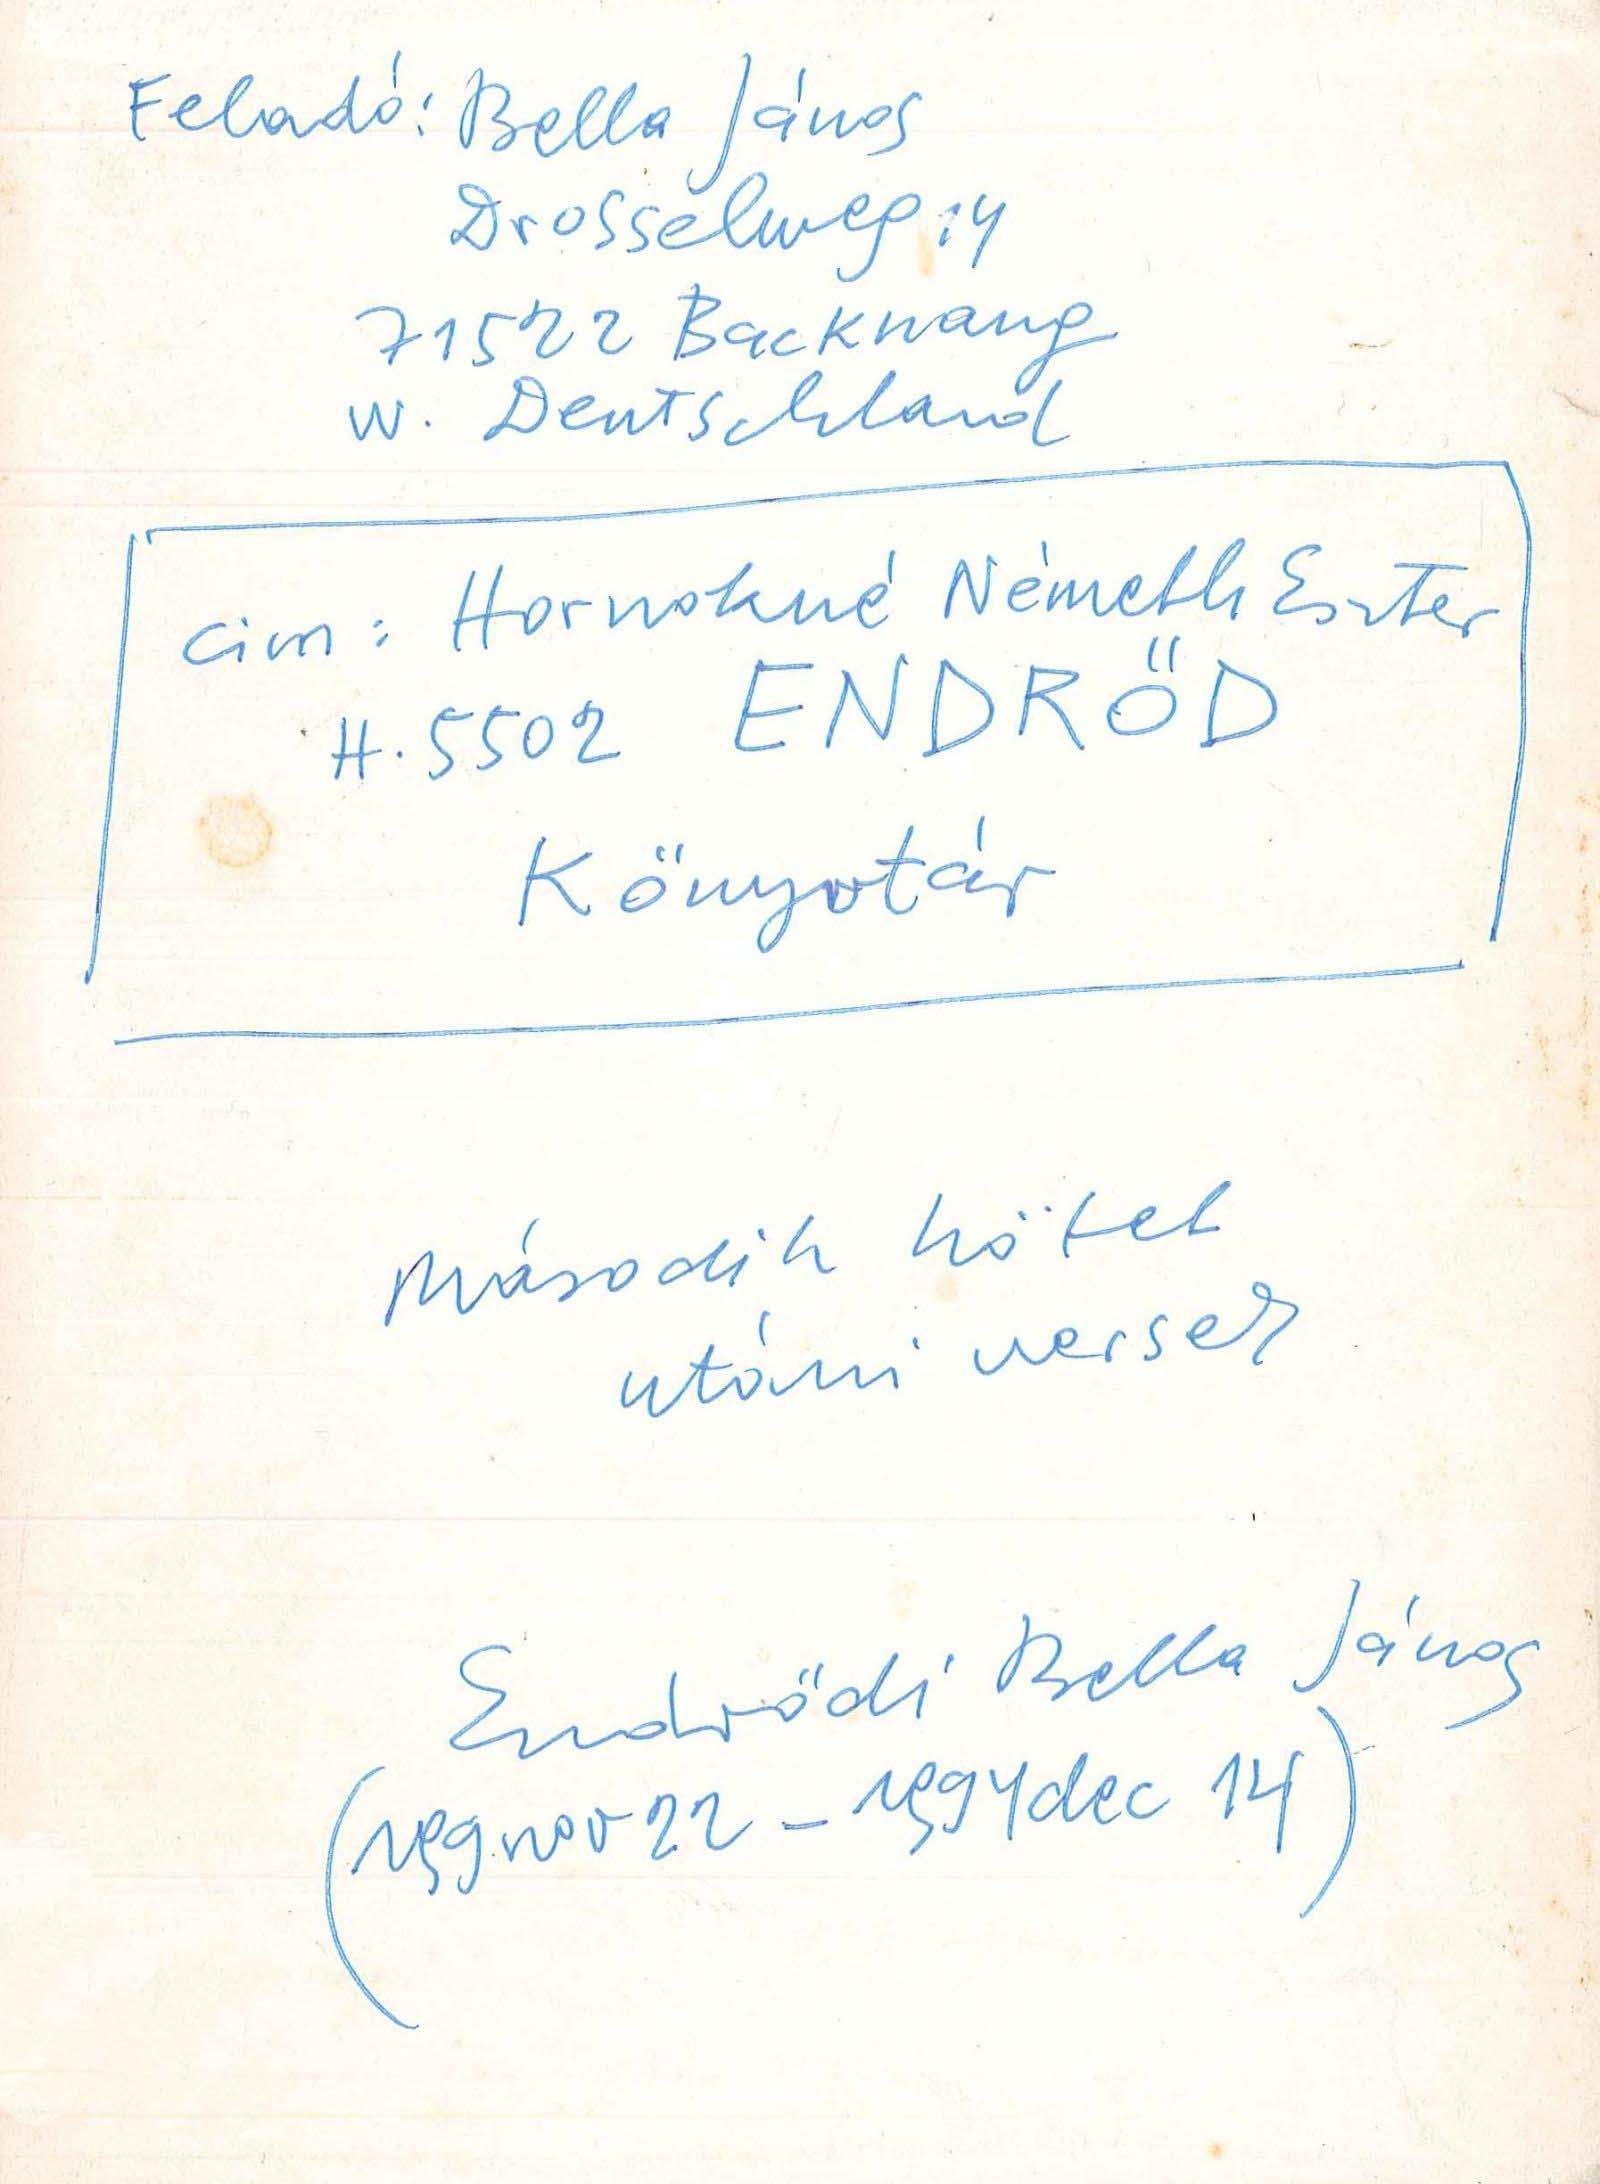 Feladó: Bella János
Drosselweg 14
71522 Backnang
W. Deutschland
cim: Hornokné Németh Eszter
H. 5502 ENDRŐD
Könyvtár
Második kötet
utáni versek
Endrődi Bella János
nov 22 - 1994 dec 14)